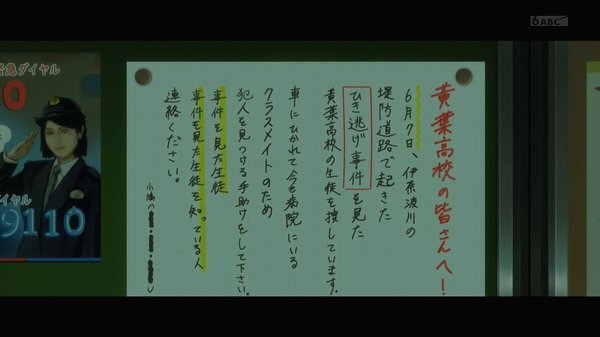 黄葉高校の皆さんへ!
6月7日、伊奈波川の
堤防道路で起きた
ひき逃げ事件を見た
黄葉高校の生徒を捜しています。
車にひかれて今も病院にいる
クラスメイトのため
犯人を見つける手助けをして下さい。
事件を見た生徒
事件を見た生徒を知っている人
連絡ください。
急ダイヤル
0
イヤル
9110
6 ABC